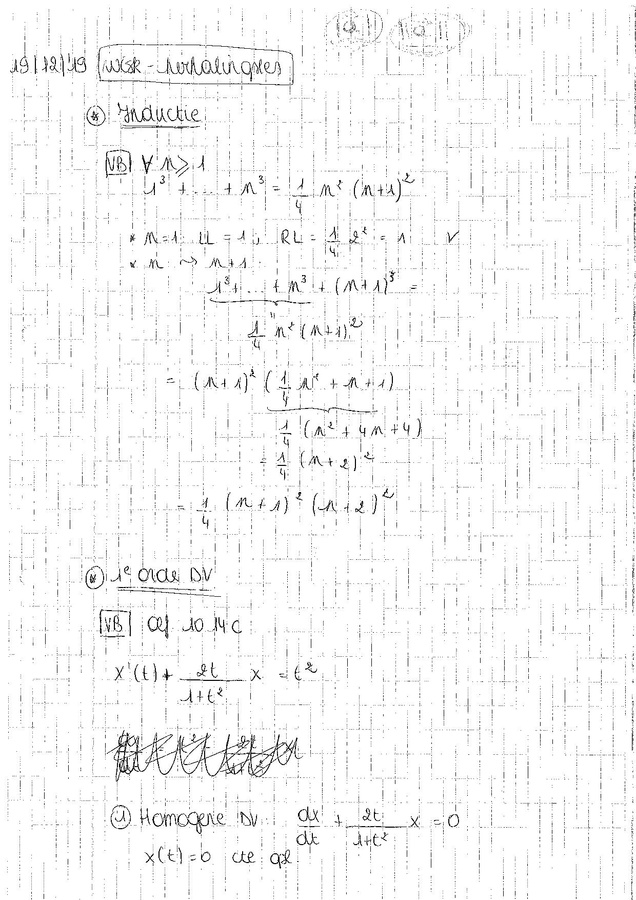 19/12/'19 wisk-herhalingsles
* Inductie
VB ∀ n ≥ 1
1³ + ... + n³ = 1/4 n² (n+1)²
* n=1 LL = 1, RL = 1/4 2² = 1 ✓
* n ⇝ n+1
1³ + ... + n³ + (n+1)³ =
"
1/4 n² (n+1)²
= (n+1)² (1/4 n² + n + 1)
1/4 (n² + 4n + 4)
= 1/4 (n+2)²
= 1/4 (n+1)² (n+2)²
* 1e orde DV
VB Oef 10.14c
x'(t) + 2t/(1+t²) x = t²
① Homogene DV dx/dt + 2t/(1+t²) x = 0
x(t) = 0 cte opl